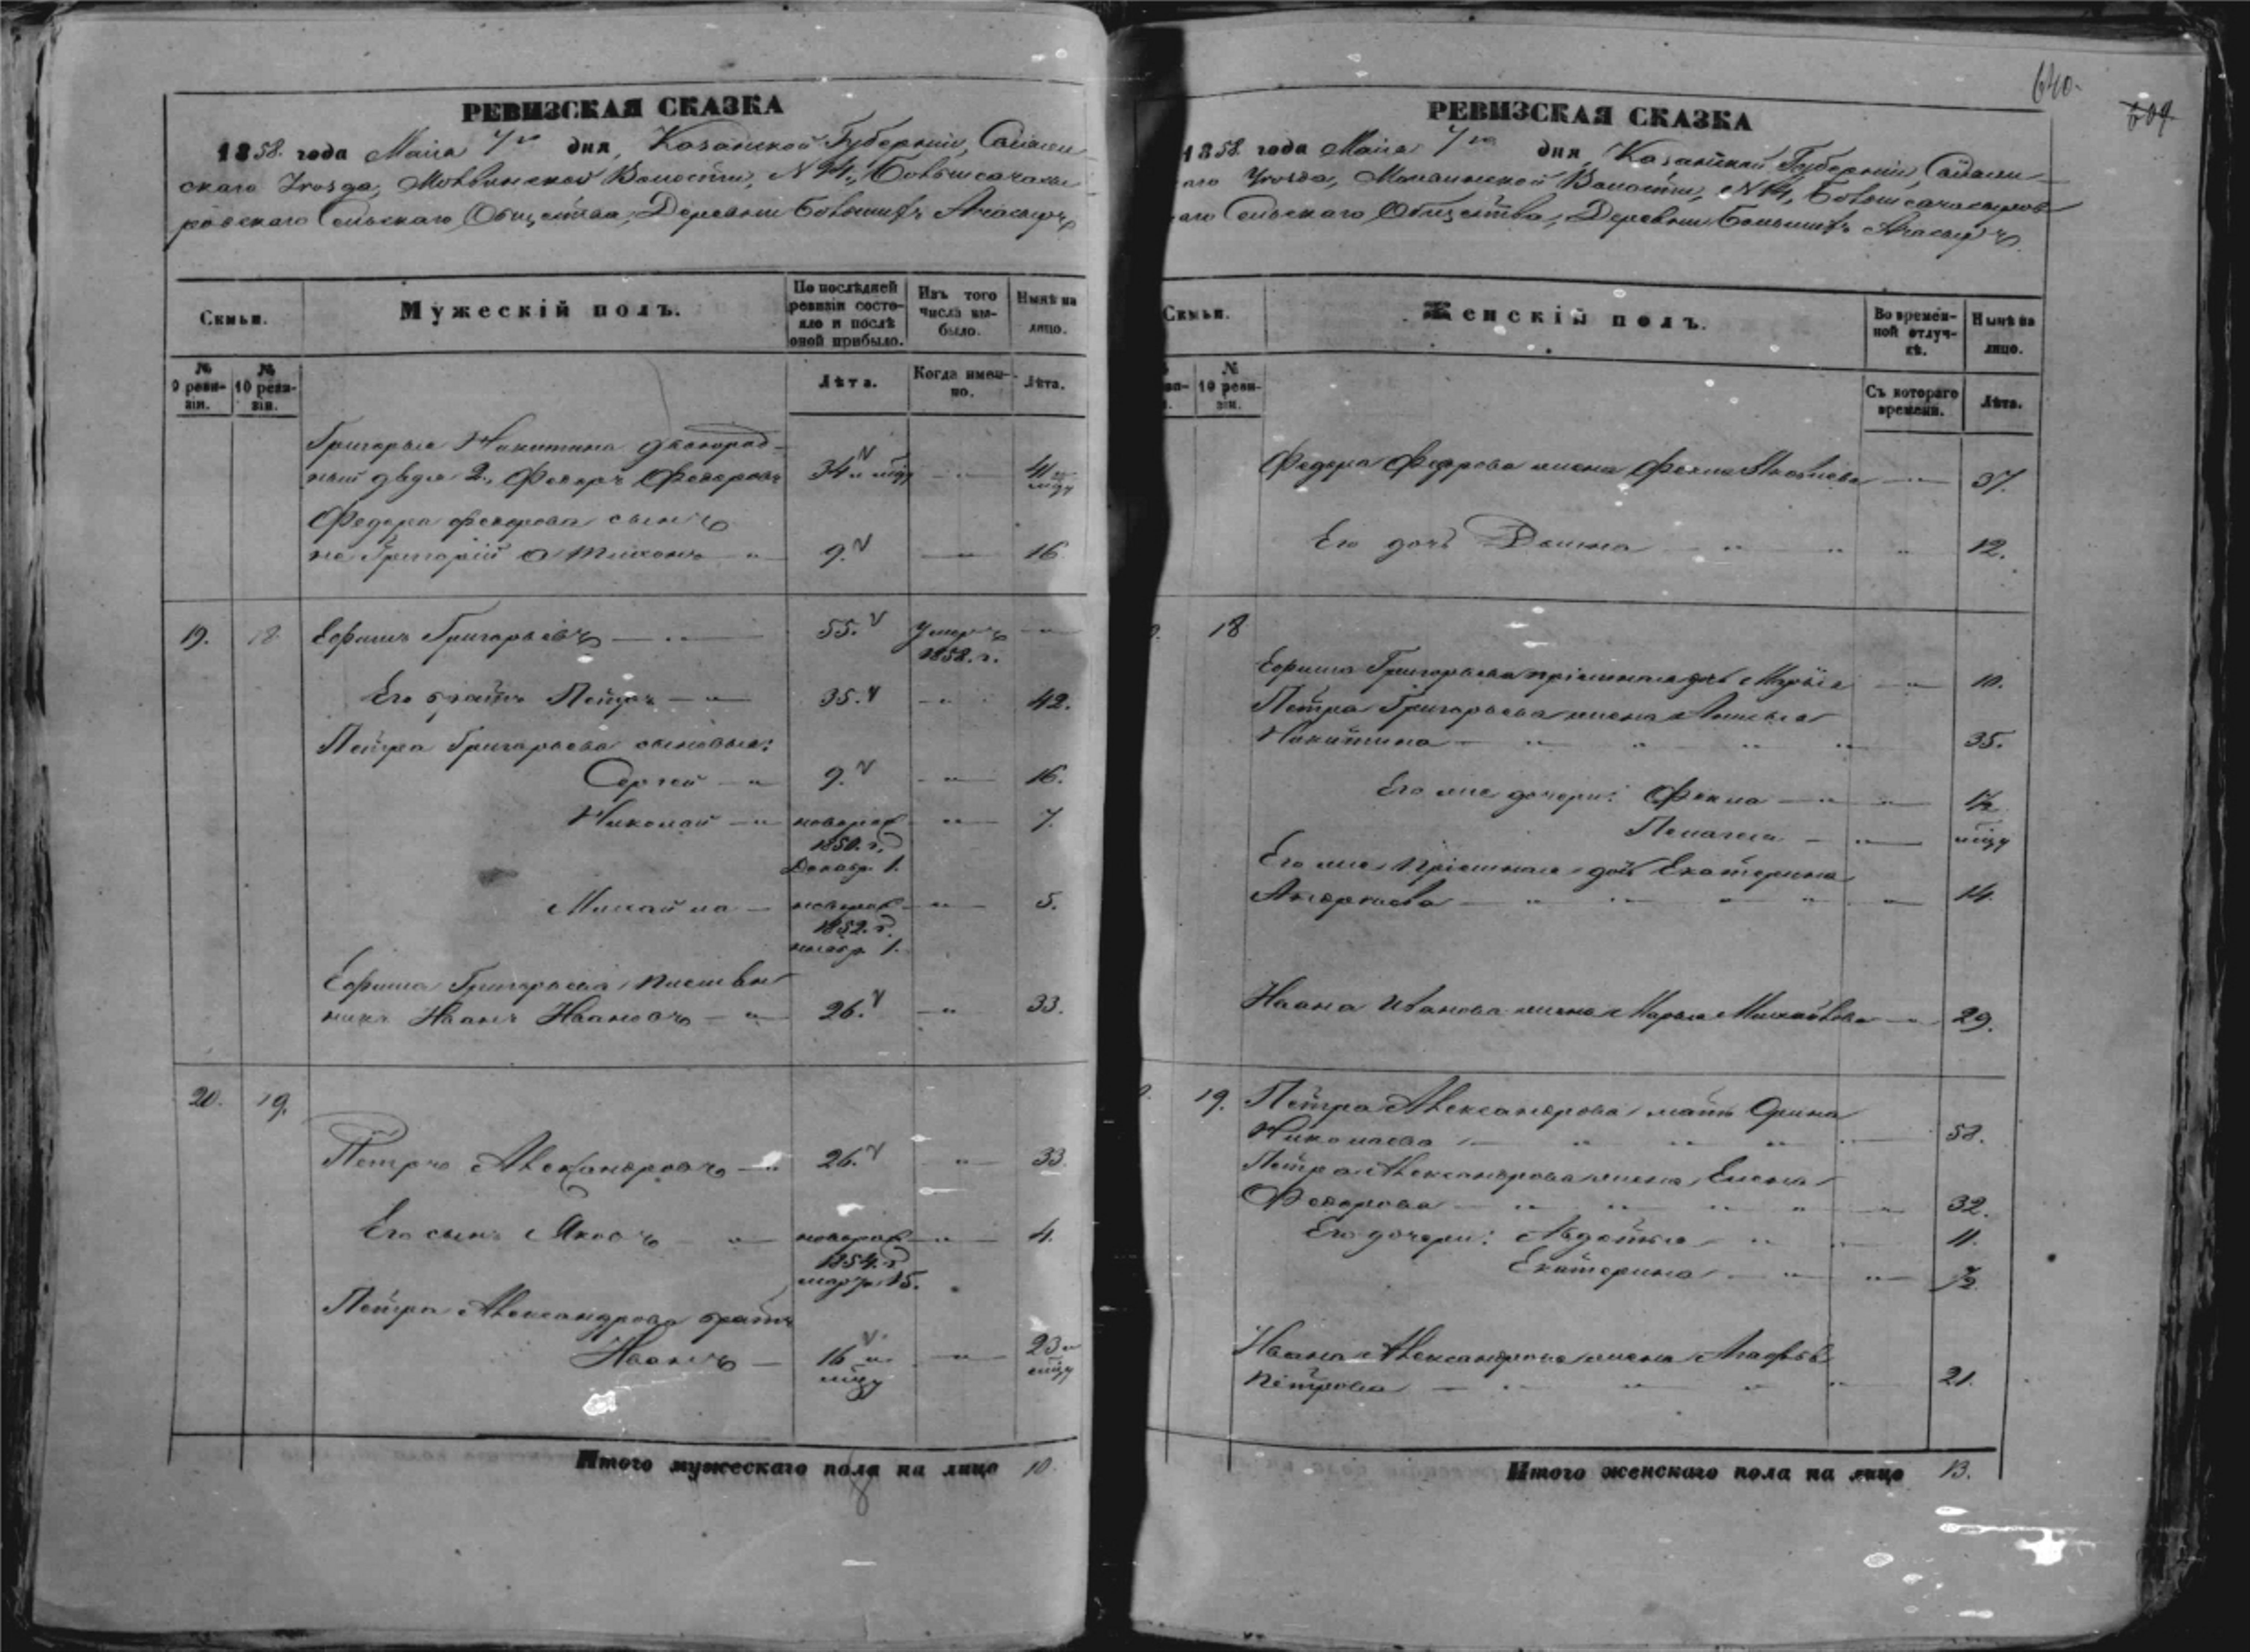 РЕВИЗСКАЯ СКАЗКА
1858. года Маія 7го дня, Казанской Губерніи,
скаго Уѣзда, Волости, N 14,
ровскаго Сельскаго Общества, Деревни Большихъ Ачасыръ
Семьи.
Мужескій полъ.
По послѣдней ревизіи состояло и послѣ оной прибыло.
Изъ того числа выбыло.
Нынѣ на лицо.
№ 9 ревизіи.
№ 10 ревизіи.
Лѣта.
Когда именно.
Лѣта.
Григорья Никитина двоюрод-
ный дядя 2., Федоръ Федоровъ 34 41
Федора Федорова сынъ
не Григорій а Тихонъ — " 9. — " — 16.
19. 18. Ефимъ Григорьевъ — " — 55. Умеръ —
1858. г.
Его братъ Петръ — " — 35. — " — 42.
Петра Григорьева сыновья:
Сергей — " 9. — " — 16.
Николай — " новорож — " — 7.
1850. г.
Декабр. 1.
Михайла — новорож — " — 5.
1852. г.
ноябр. 1.
Ефима Григорьева племян
никъ Иванъ Ивановъ — " 26. — " — 33.
20. 19.
Петръ Александровъ — " 26. " — 33.
Его сынъ Яковъ — " новорож — " — 4.
1854. г
марта 15.
Петра Александрова братъ
Иванъ — 16 — " — 23
Итого мужескаго пола на лицо 10.
640.
609.
РЕВИЗСКАЯ СКАЗКА
1858. года Маія 7го дня, Казанской Губерніи,
Уѣзда, Волости, N 14,
Сельскаго Общества, Деревни Большихъ Ачасыръ
Семьи.
Женскій полъ.
Во временной отлучкѣ.
Нынѣ на лицо.
№ 10 ревизіи.
Съ котораго времени.
Лѣта.
Федора Федорова жена Фекла — " — 37.
Его дочь — " " " 12.
18
Ефима Григорьева пріемная дочь Марья — " — 10.
Петра Григорьева жена Анисья
Никитина — " " " " 35.
Его же дочери: Фекла — " " — 1/2
Пелагея — " —
Его же пріемная дочь Екатерина
— " " " " " — 14.
Ивана Иванова жена Марья Михайлова — " — 29.
19. Петра Александрова мать Орина
Николаева — " " " " — 58.
Петра Александрова жена Елена
Федорова — " " " " — 32.
Его дочери: Авдотья — " " — 11.
Екатерина — " " — 1/2.
Ивана Александрова жена Агафья
Петрова — " " " " — 21.
Итого женскаго пола на лицо 13.